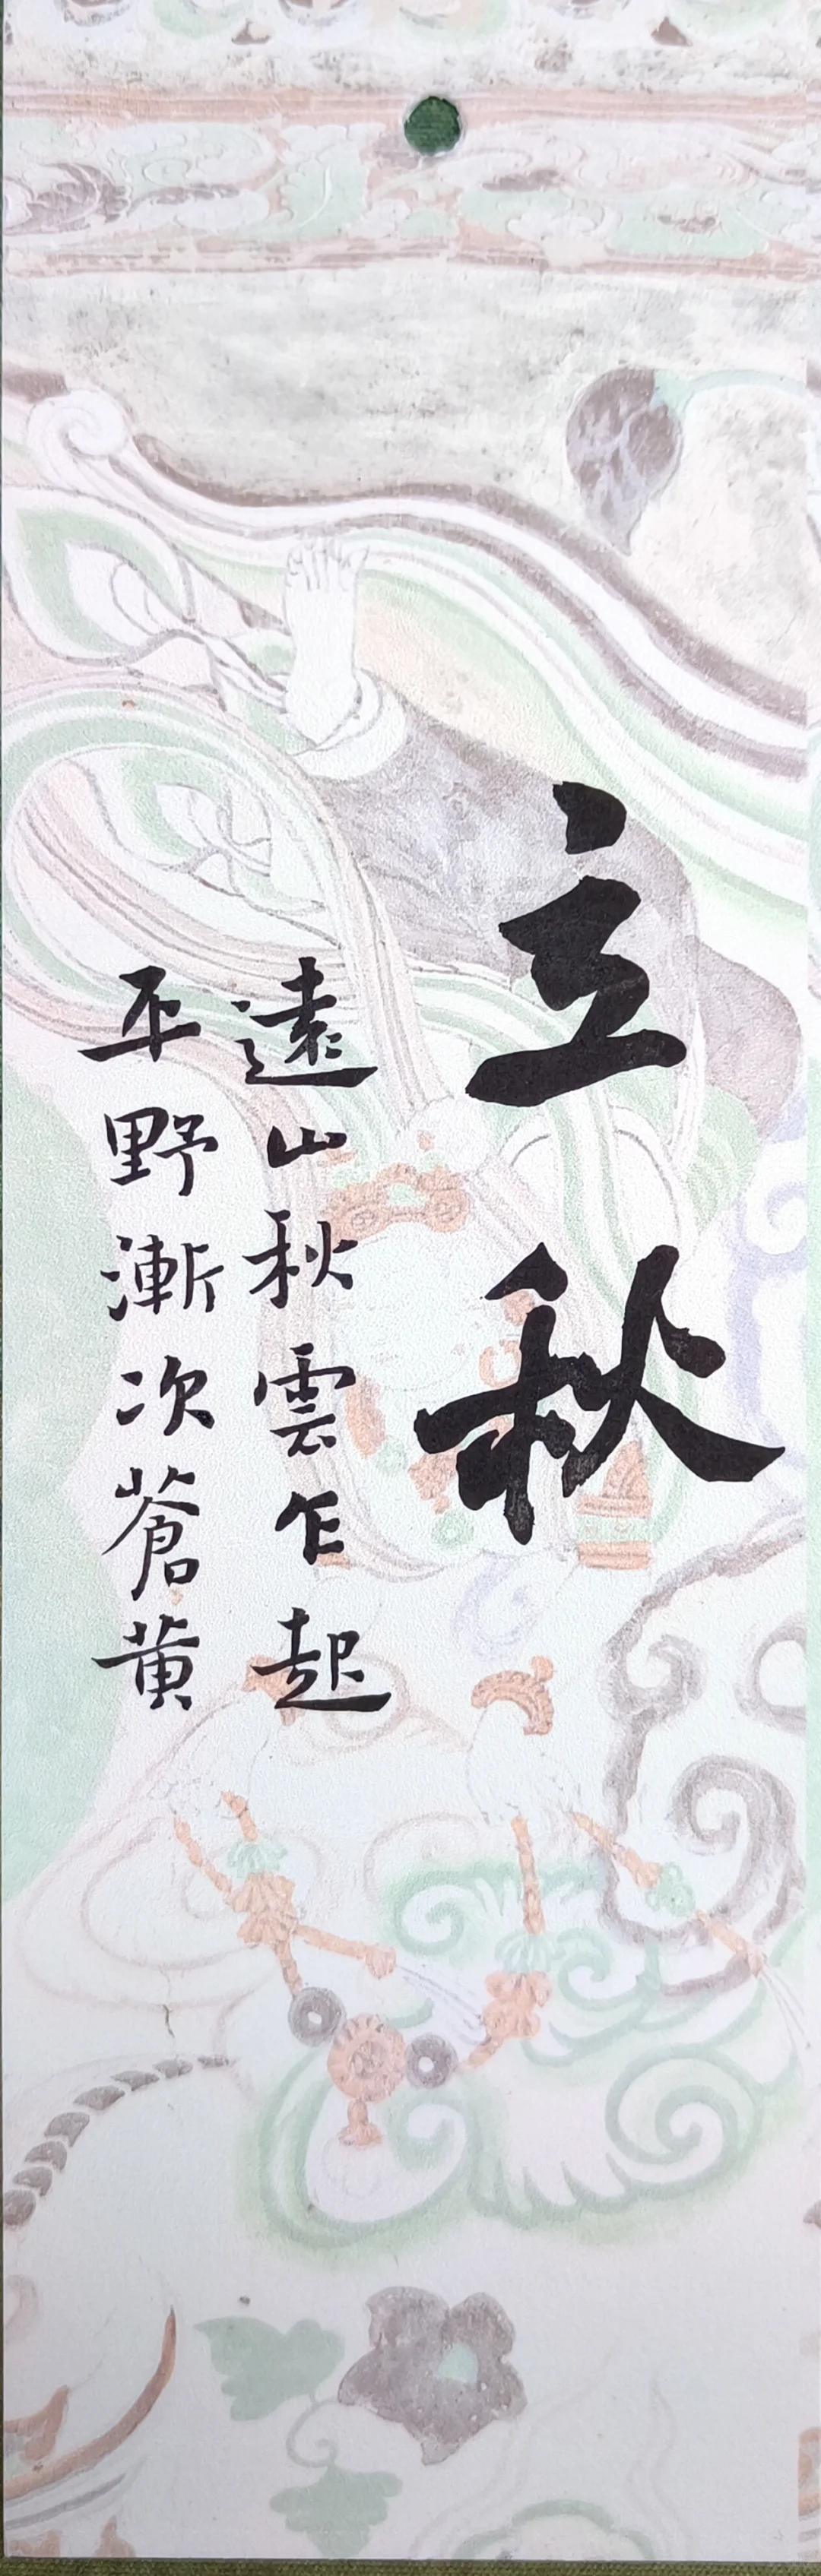 立秋
遠山秋雲乍起
平野漸次蒼黄